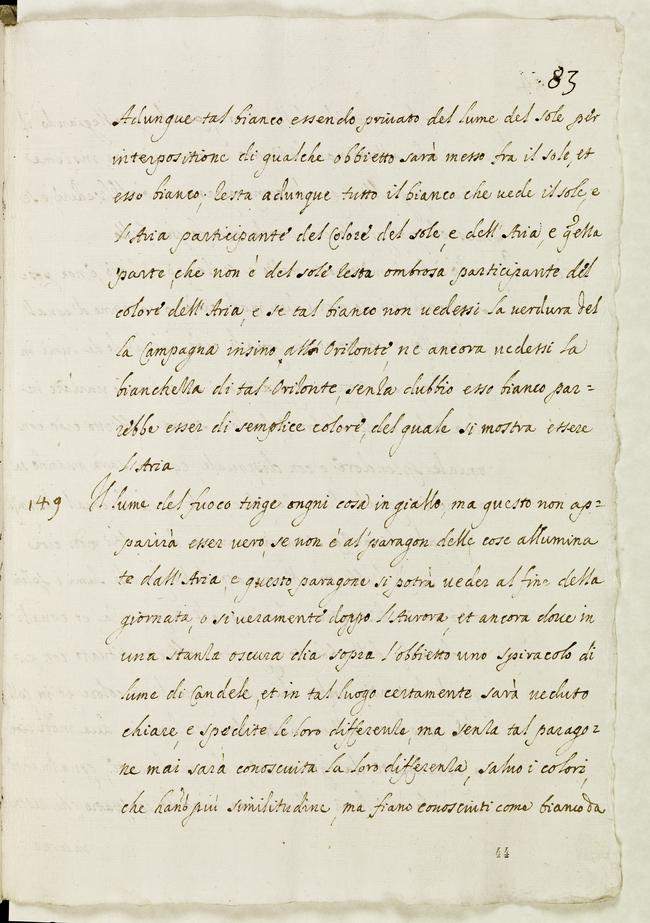 83
Adunque tal bianco essendo privato del lume del sole per
interpositione di qualche obbietto sarà messo fra il sole, et
esso bianco; resta adunque tutto il bianco che vede il sole, e
l'Aria participante del Colore del sole, e dell'Aria, e qlla
parte, che non è del sole resta ombrosa participante del
colore dell'Aria, e se tal bianco non vedessi la verdura del
la Campagna insino all' Orizonte, ne ancora vedessi la
bianchezza di tal Orizonte, senza dubbio esso bianco par=
rebbe esser di semplice colore, del quale si mostra essere
l'Aria
149 Il lume del fuoco tinge ongni cosa in giallo, ma questo non ap=
parirà esser vero, se non è al paragon delle cose allumina
te dall'Aria, e questo paragone si potrà veder al fine della
giornata, o si veramente doppo l'Aurora, et ancora dove in
una stanza oscura dia sopra l'obbietto uno spiracolo di
lume di Candele, et in tal luogo certamente sarà veduto
chiare, e spedite le loro differenze, ma senza tal parago=
ne mai sarà conosciuta la loro differenza, salvo i colori,
che hanò più similitudine, ma fiano conosciuti come bianco da
44